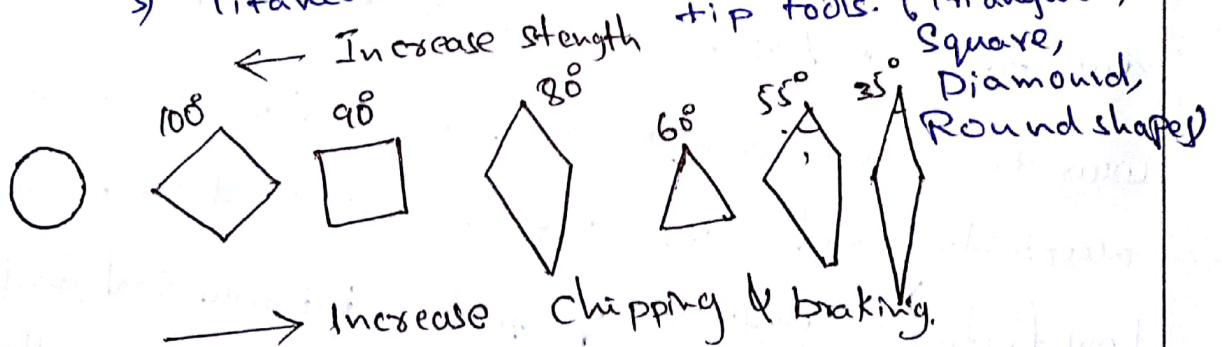 5)
tip tools.
← Increase stength
Square,
Diamound,
Round shapes
100°
90°
80°
60°
55°
35°
→ Increase chipping & braking.